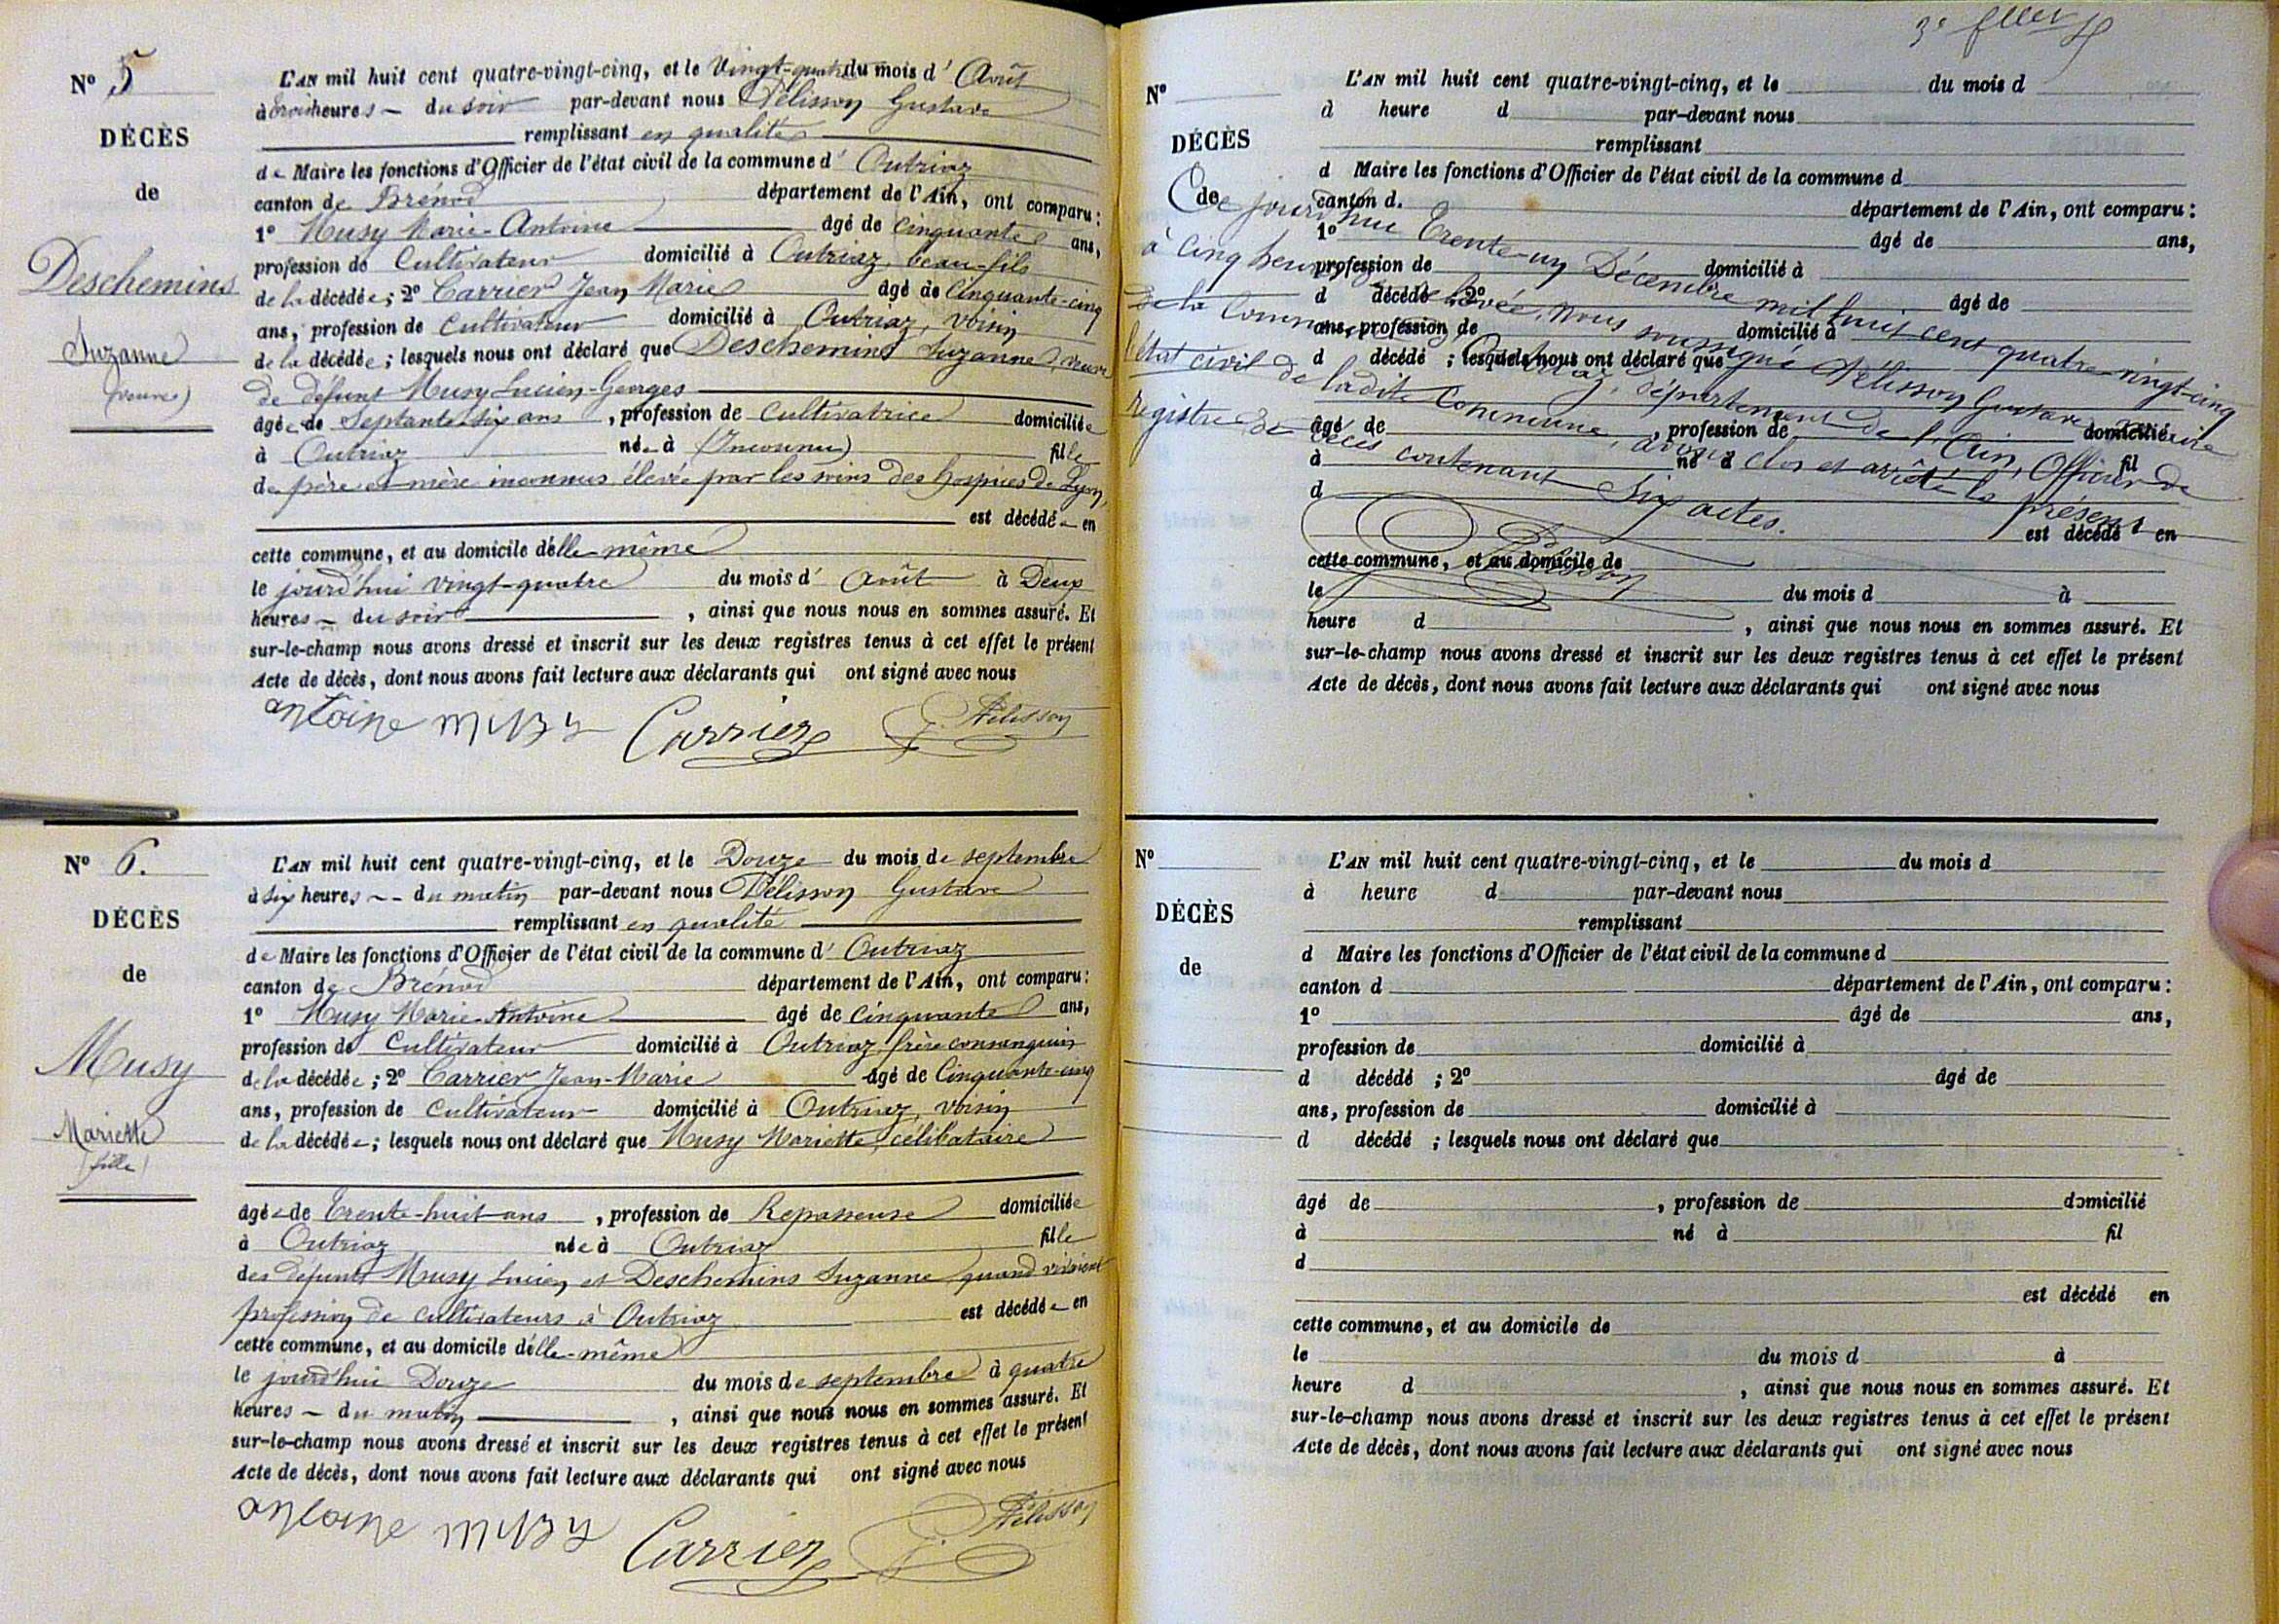 N° 5
DÉCÈS
de
Deschemins
Suzanne
(veuve)
L'AN mil huit cent quatre-vingt-cinq, et le Vingt-quatre du mois d' Août
à trois heures - du soir par-devant nous Pélisson Gustave
remplissant en qualité
de Maire les fonctions d'Officier de l'état civil de la commune d' Outriaz
canton de Brénod département de l'Ain, ont comparu :
1° Musy Marie-Antoine âgé de cinquante ans,
profession de Cultivateur domicilié à Outriaz, beau-fils
de la décédée ; 2° Carrier Jean Marie âgé de Cinquante-cinq
ans, profession de Cultivateur domicilié à Outriaz, voisin
de la décédée ; lesquels nous ont déclaré que Deschemins Suzanne, veuve
de défunt Musy Lucien-Georges
âgée de Septante-six ans, profession de Cultivatrice domiciliée
à Outriaz né à (Inconnu) fille
de père et mère inconnus, élevée par les soins des hospices de Lyon,
est décédée en
cette commune, et au domicile d'elle-même
le jourd'hui vingt-quatre du mois d' Août à Deux
heures - du soir, ainsi que nous nous en sommes assuré. Et
sur-le-champ nous avons dressé et inscrit sur les deux registres tenus à cet effet le présent
Acte de décès, dont nous avons fait lecture aux déclarants qui ont signé avec nous
antoine musy Carrier Pélisson
N° 6.
DÉCÈS
de
Musy
Mariette
(fille)
L'AN mil huit cent quatre-vingt-cinq, et le Douze du mois de septembre
à six heures -- du matin par-devant nous Pélisson Gustave
remplissant en qualité
de Maire les fonctions d'Officier de l'état civil de la commune d' Outriaz
canton de Brénod département de l'Ain, ont comparu :
1° Musy Marie-Antoine âgé de cinquante ans,
profession de Cultivateur domicilié à Outriaz, frère consanguin
de la décédée ; 2° Carrier Jean-Marie âgé de Cinquante-cinq
ans, profession de Cultivateur domicilié à Outriaz, voisin
de la décédée ; lesquels nous ont déclaré que Musy Mariette, célibataire
âgée de Trente-huit ans, profession de Repasseuse domiciliée
à Outriaz née à Outriaz fille
des défunts Musy Lucien et Deschemins Suzanne, quand vivaient
profession de cultivateurs à Outriaz est décédée en
cette commune, et au domicile d'elle-même
le jourd'hui Douze du mois de septembre à quatre
heures - du matin, ainsi que nous nous en sommes assuré. Et
sur-le-champ nous avons dressé et inscrit sur les deux registres tenus à cet effet le présent
Acte de décès, dont nous avons fait lecture aux déclarants qui ont signé avec nous
antoine musy Carrier Pélisson
N°
DÉCÈS
de
L'AN mil huit cent quatre-vingt-cinq, et le du mois d
à heure d par-devant nous
remplissant
d Maire les fonctions d'Officier de l'état civil de la commune d
canton d. département de l'Ain, ont comparu :
1° âgé de ans,
profession de domicilié à
d décédé ; 2° âgé de
ans, profession de domicilié à
d décédé ; lesquels nous ont déclaré que
âgé de , profession de domicilié
à né à fil
d
est décédé en
cette commune, et au domicile de
le du mois d à
heure d , ainsi que nous nous en sommes assuré. Et
sur-le-champ nous avons dressé et inscrit sur les deux registres tenus à cet effet le présent
Acte de décès, dont nous avons fait lecture aux déclarants qui ont signé avec nous
Ce jourd'hui Trente-un Décembre mil huit cent quatre-vingt-cinq
à cinq heures relevée, nous soussigné Pélisson Gustave Maire
de la Commune Outriaz, département de l'Ain, Officier de
l'état civil de ladite Commune, avons clos et arrêté le présent
registre de décès contenant Six actes.
Pélisson
N°
DÉCÈS
de
L'AN mil huit cent quatre-vingt-cinq, et le du mois d
à heure d par-devant nous
remplissant
d Maire les fonctions d'Officier de l'état civil de la commune d
canton d département de l'Ain, ont comparu :
1° âgé de ans,
profession de domicilié à
d décédé ; 2° âgé de
ans, profession de domicilié à
d décédé ; lesquels nous ont déclaré que
âgé de , profession de domicilié
à né à fil
d
est décédé en
cette commune, et au domicile de
le du mois d à
heure d , ainsi que nous nous en sommes assuré. Et
sur-le-champ nous avons dressé et inscrit sur les deux registres tenus à cet effet le présent
Acte de décès, dont nous avons fait lecture aux déclarants qui ont signé avec nous